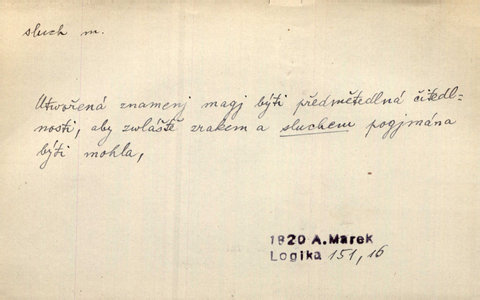 sluch m.
Utwořená znamenj magj býti předmětedlná čitedl-
nosti, aby zwláště zrakem a sluchem pogjmána
býti mohla,
1820 A.Marek
Logika 151, 16